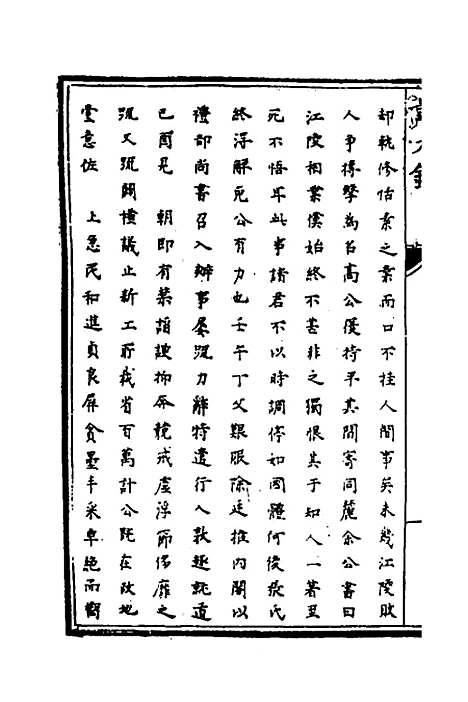 却軌修怡素之業而口不挂人間事矣未幾江陵敗
人爭搏擊為名高公優待平其間寄同麓余公書曰
江陵相業僕始終不甚非之獨恨其于知人一著至
死不悟耳此事諸君不以時調停如國體何後張氏
終得解死公有力也壬午丁父艱服除廷推內閣以
禮部尚書召入辦事屢疏力辭特遣行人敦趣就道
己酉見　朝即有葉諧謏抑奔競戒虛浮節侈靡之
疏又疏闢橫議止新工所裁省百萬計公既在政地
壹意佐　上急民和進貞良屏貪墨丰采卓絶而鬱